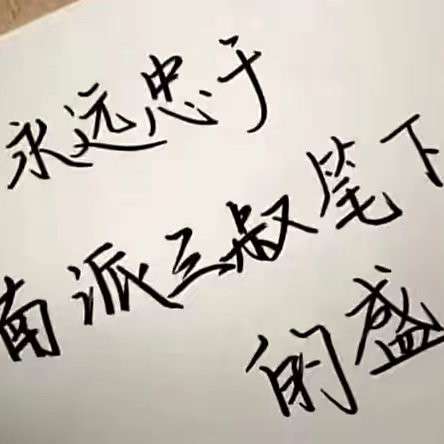 永远忠于
南派三叔笔下
的盛